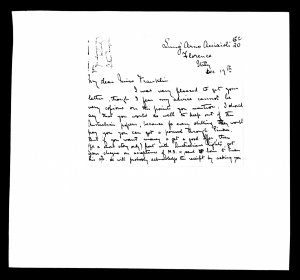 Lung' Arno Acciaioli 20
Florence
Italy
Dec 19th
My dear Miss Franklin
I was very pleased to get your
letter, though I fear my advice cannot be
very copious on the point you mention. I should
say that you would do well to keep out of the
Australian papers, because for every shilling they would
pay you you can get a pound through Pinker.
But if you want money & get a good offer then
for a short story only part with Australian rights, get
your cheque on acceptance of M.S. & send to Pinker
he will probably acknowledge the receipt by asking you